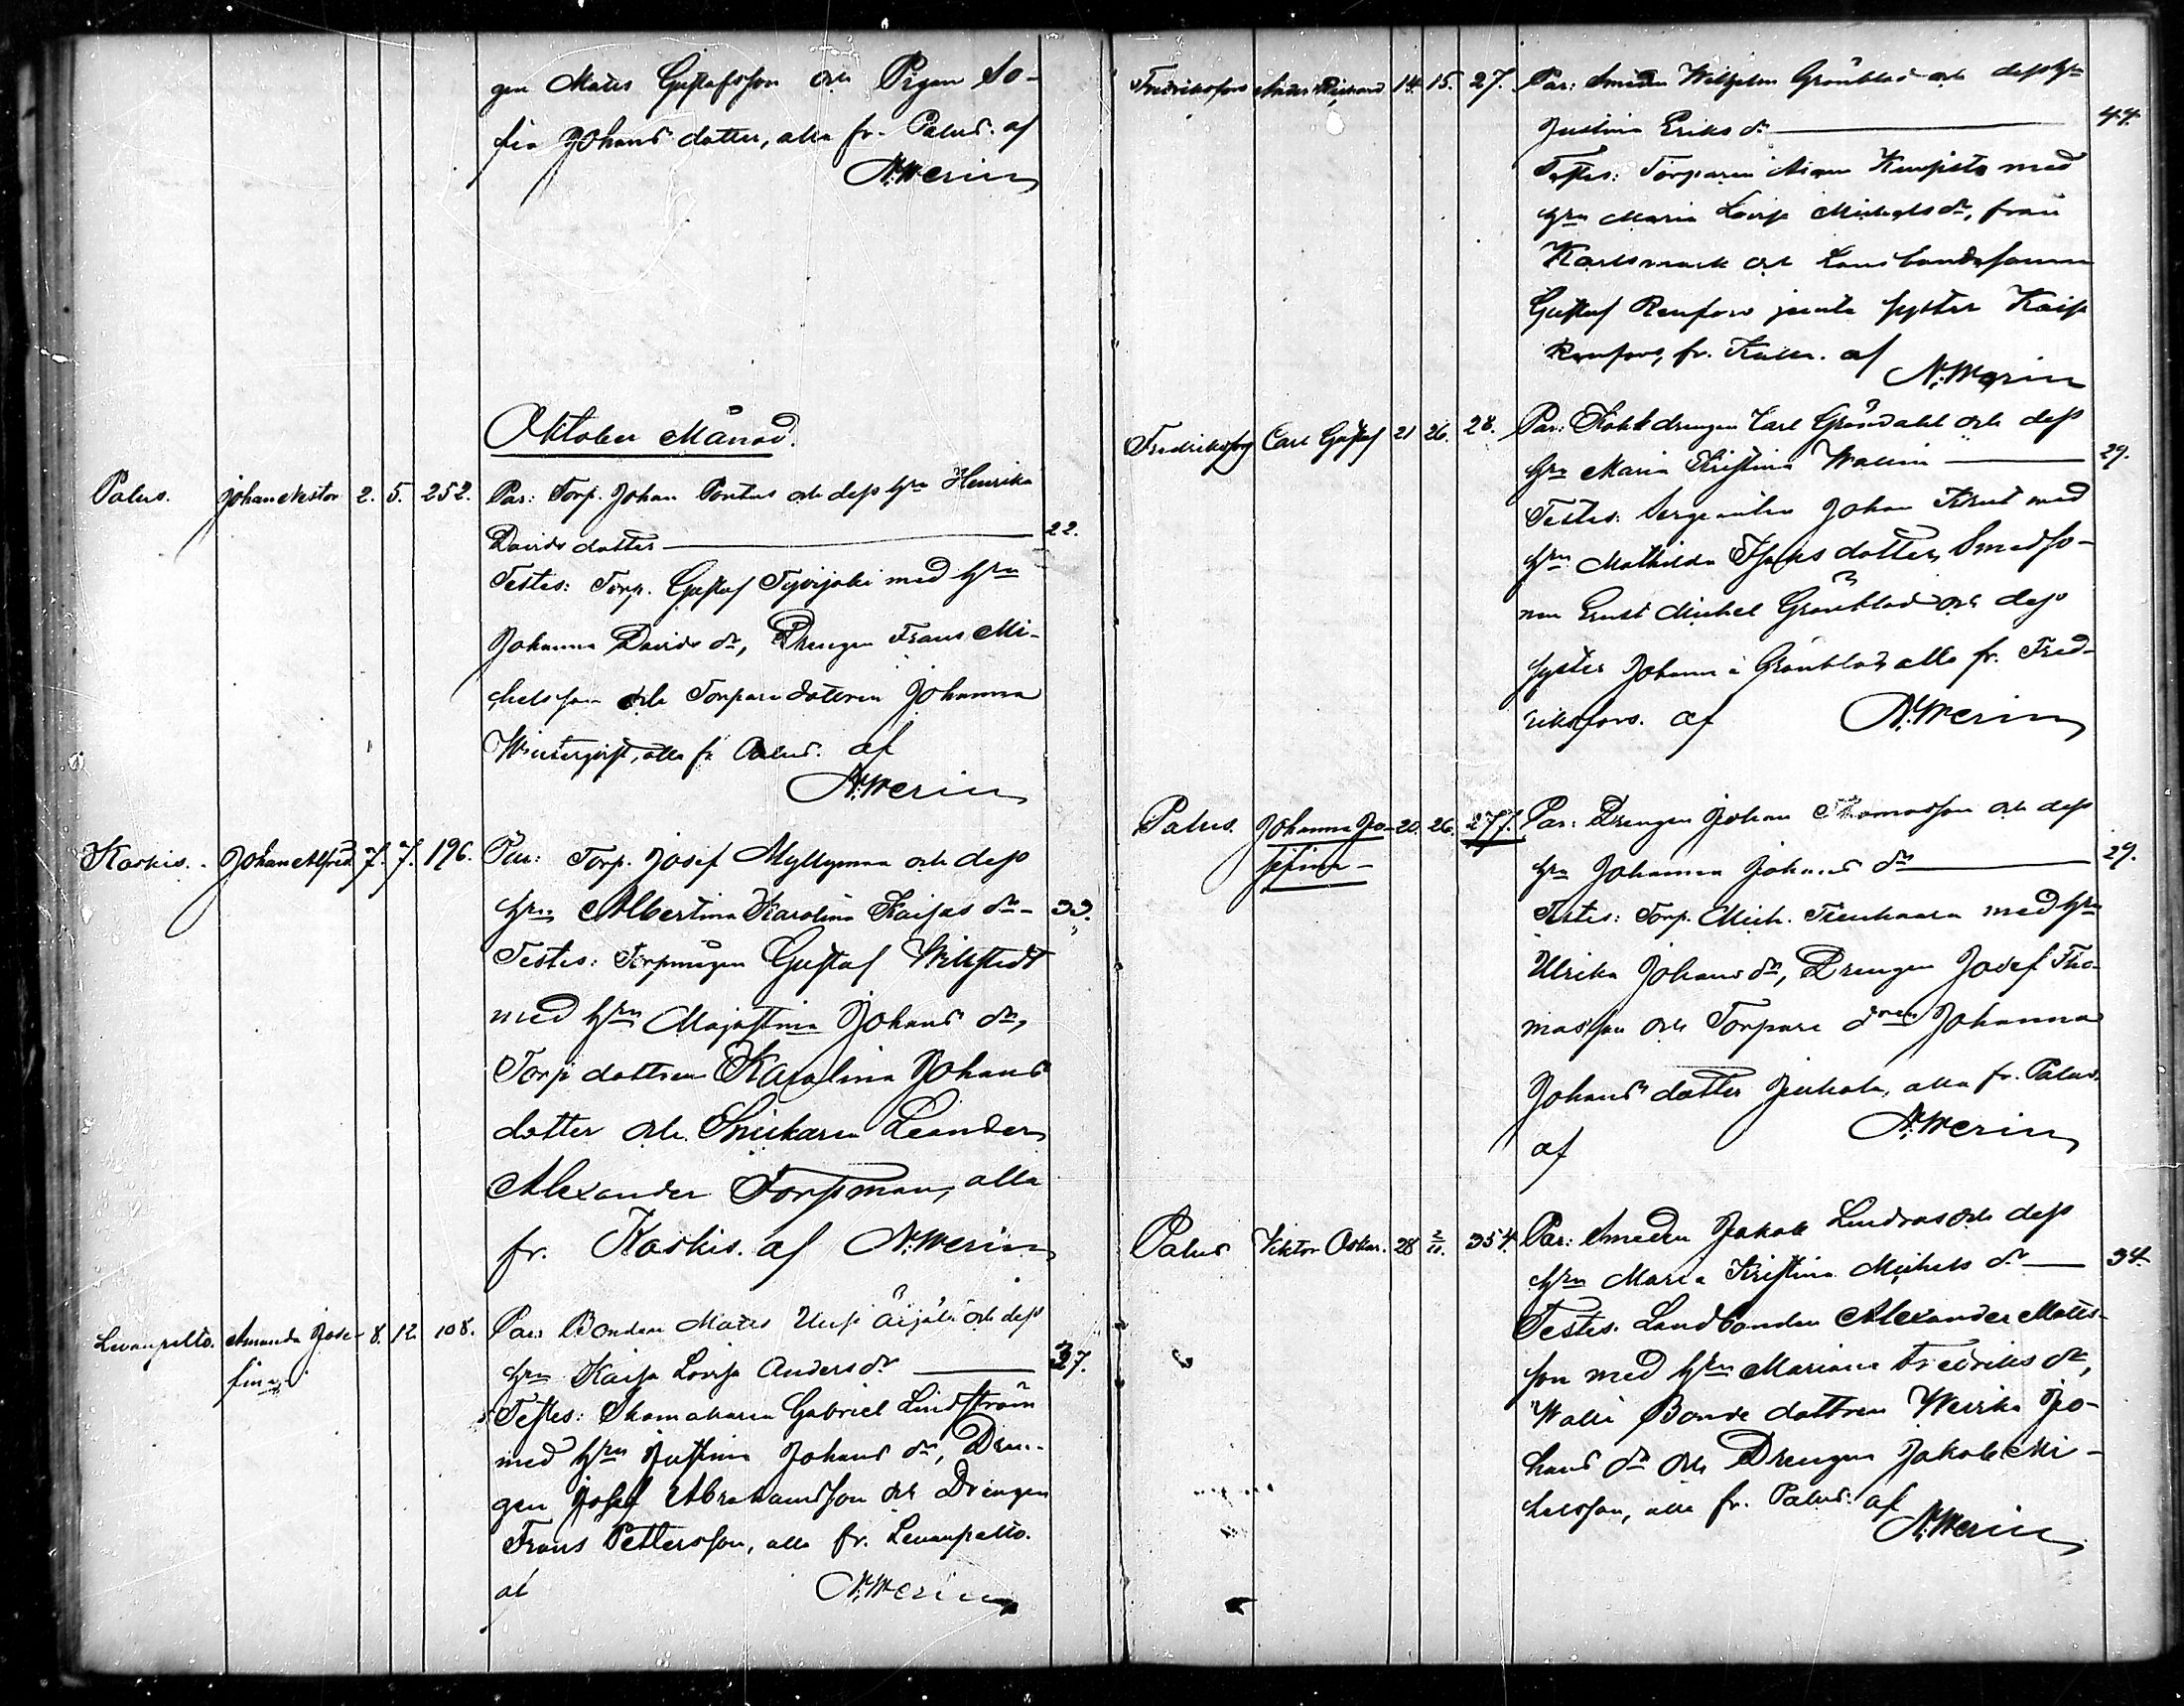 gen Mats Gustafsson och Pigan So-
fia Johans dotter, alla fr. Palus. af
N. Merin
Oktober Månad.
Palus. Johan Nestor 2. 5. 252. Par: Torp. Johan Pontus och dess hru Henrika
Davids dotter 22.
Testes: Torp. Gustaf Syvijoki med hru
Johanna Davids dr, Drengen Frans Mi-
chelsson och Torpare dottren Johanna
alla fr. Palus. af
N. Merin
Koskis. Johan Alfred 7. 7. 196. Par: Torp. Josef Myllymaa och dess
hru Albertina Karolina Kaisas dr 33.
Testes: Gustaf Wikstedt
med hru Majastina Johans dr,
Torp dottren Karolina Johans
dotter och Snickaren Leander
Alexander Forsman, alla
fr. Koskis. af N. Merin
Levanpelto. Amanda Jose- 8. 12. 108. Par: Bonden Mats Äijälä och dess
fina. hru Kaisa Lovisa Anders dr 37.
Testes: Skomakaren Gabriel Lindström
med hru Justina Johans dr, Dren-
gen Josef Abrahamsson och Drengen
Frans Pettersson, alla fr. Levanpelto.
af N. Merin
Fredriksfors Richard 14. 15. 27. Par: Smeden Wilhelm Grönblad och dess hru
Justina Eriks dr 44.
Testes: Torparen med
hru Maria Lovisa Michels dr, från
Karlsmark och Landbondesonen
Gustaf Renfors jemte syster Kaisa
Renfors, fr. af
N. Merin
Fredriksfors Carl Gustaf 21 26. 28. Par: Carl Gröndahl och dess
hru Maria Kristina Wallin 29.
Testes: Sergeanten Johan med
hru Mathilda Isaks dotter, Smedso-
nen Ernst Michel Grönblad och dess
syster Johanna Grönblad, alla fr. Fred-
riksfors. af N. Merin
Palus. Johanna Jo- 20. 26. 277. Par: Drengen Johan Thomasson och dess
sefina hru Johanna Johans dr 29.
Testes: Torp. Mich. med hru
Ulrika Johans dr, Drengen Josef Tho-
masson och Torpare dren Johanna
Johans dotter alla fr. Palus.
af N. Merin
Palus Viktor Oskar. 28 2/11. 354. Par: Smeden Jakob Lindroos och dess
hru Maria Kristina Michels dr 34.
Testes. Landbonden Alexander Mats-
son med hru Mariana Fredriks dr,
Bonde dottren Jo-
hans dr och Drengen Jakob Mi-
chelsson, alla fr. Palus. af
N. Merin